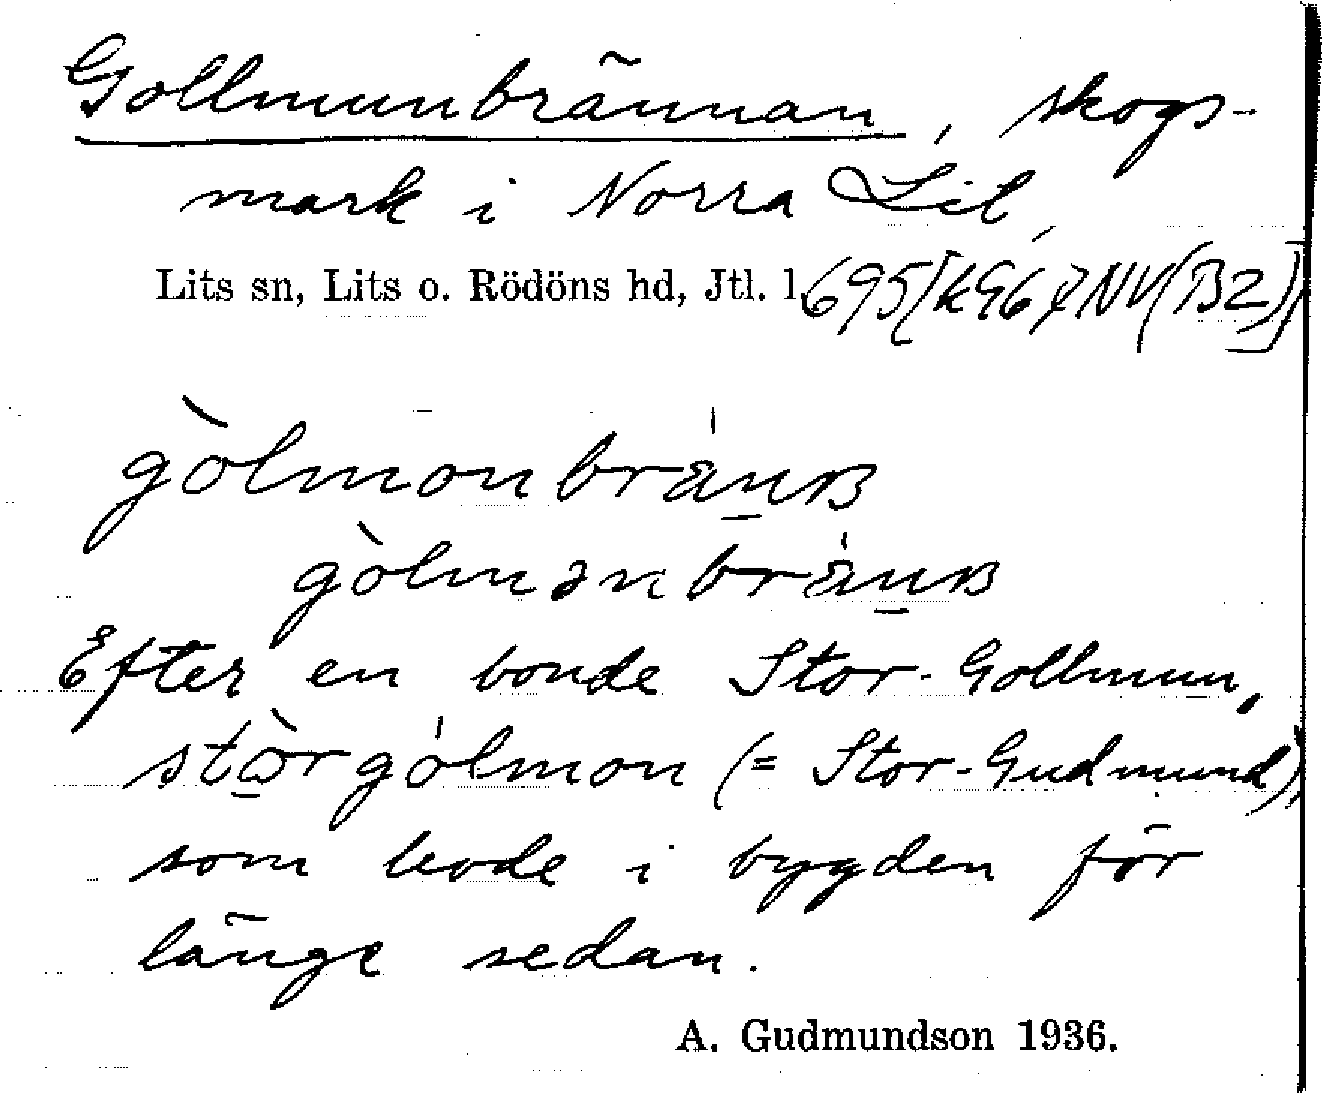 Gollmunbrännan, skogs-
mark i Norra Lit,
Lits sn, Lits o. Rödöns hd, Jtl. l.
gòlmonbrá̱nʙ
gòlmənbrá̱nʙ
Efter en bonde Stor-Gollmun,
stòrgólmon (= Stor-Gudmund),
som levde i bygden för
länge sedan.
A. Gudmundson 1936.